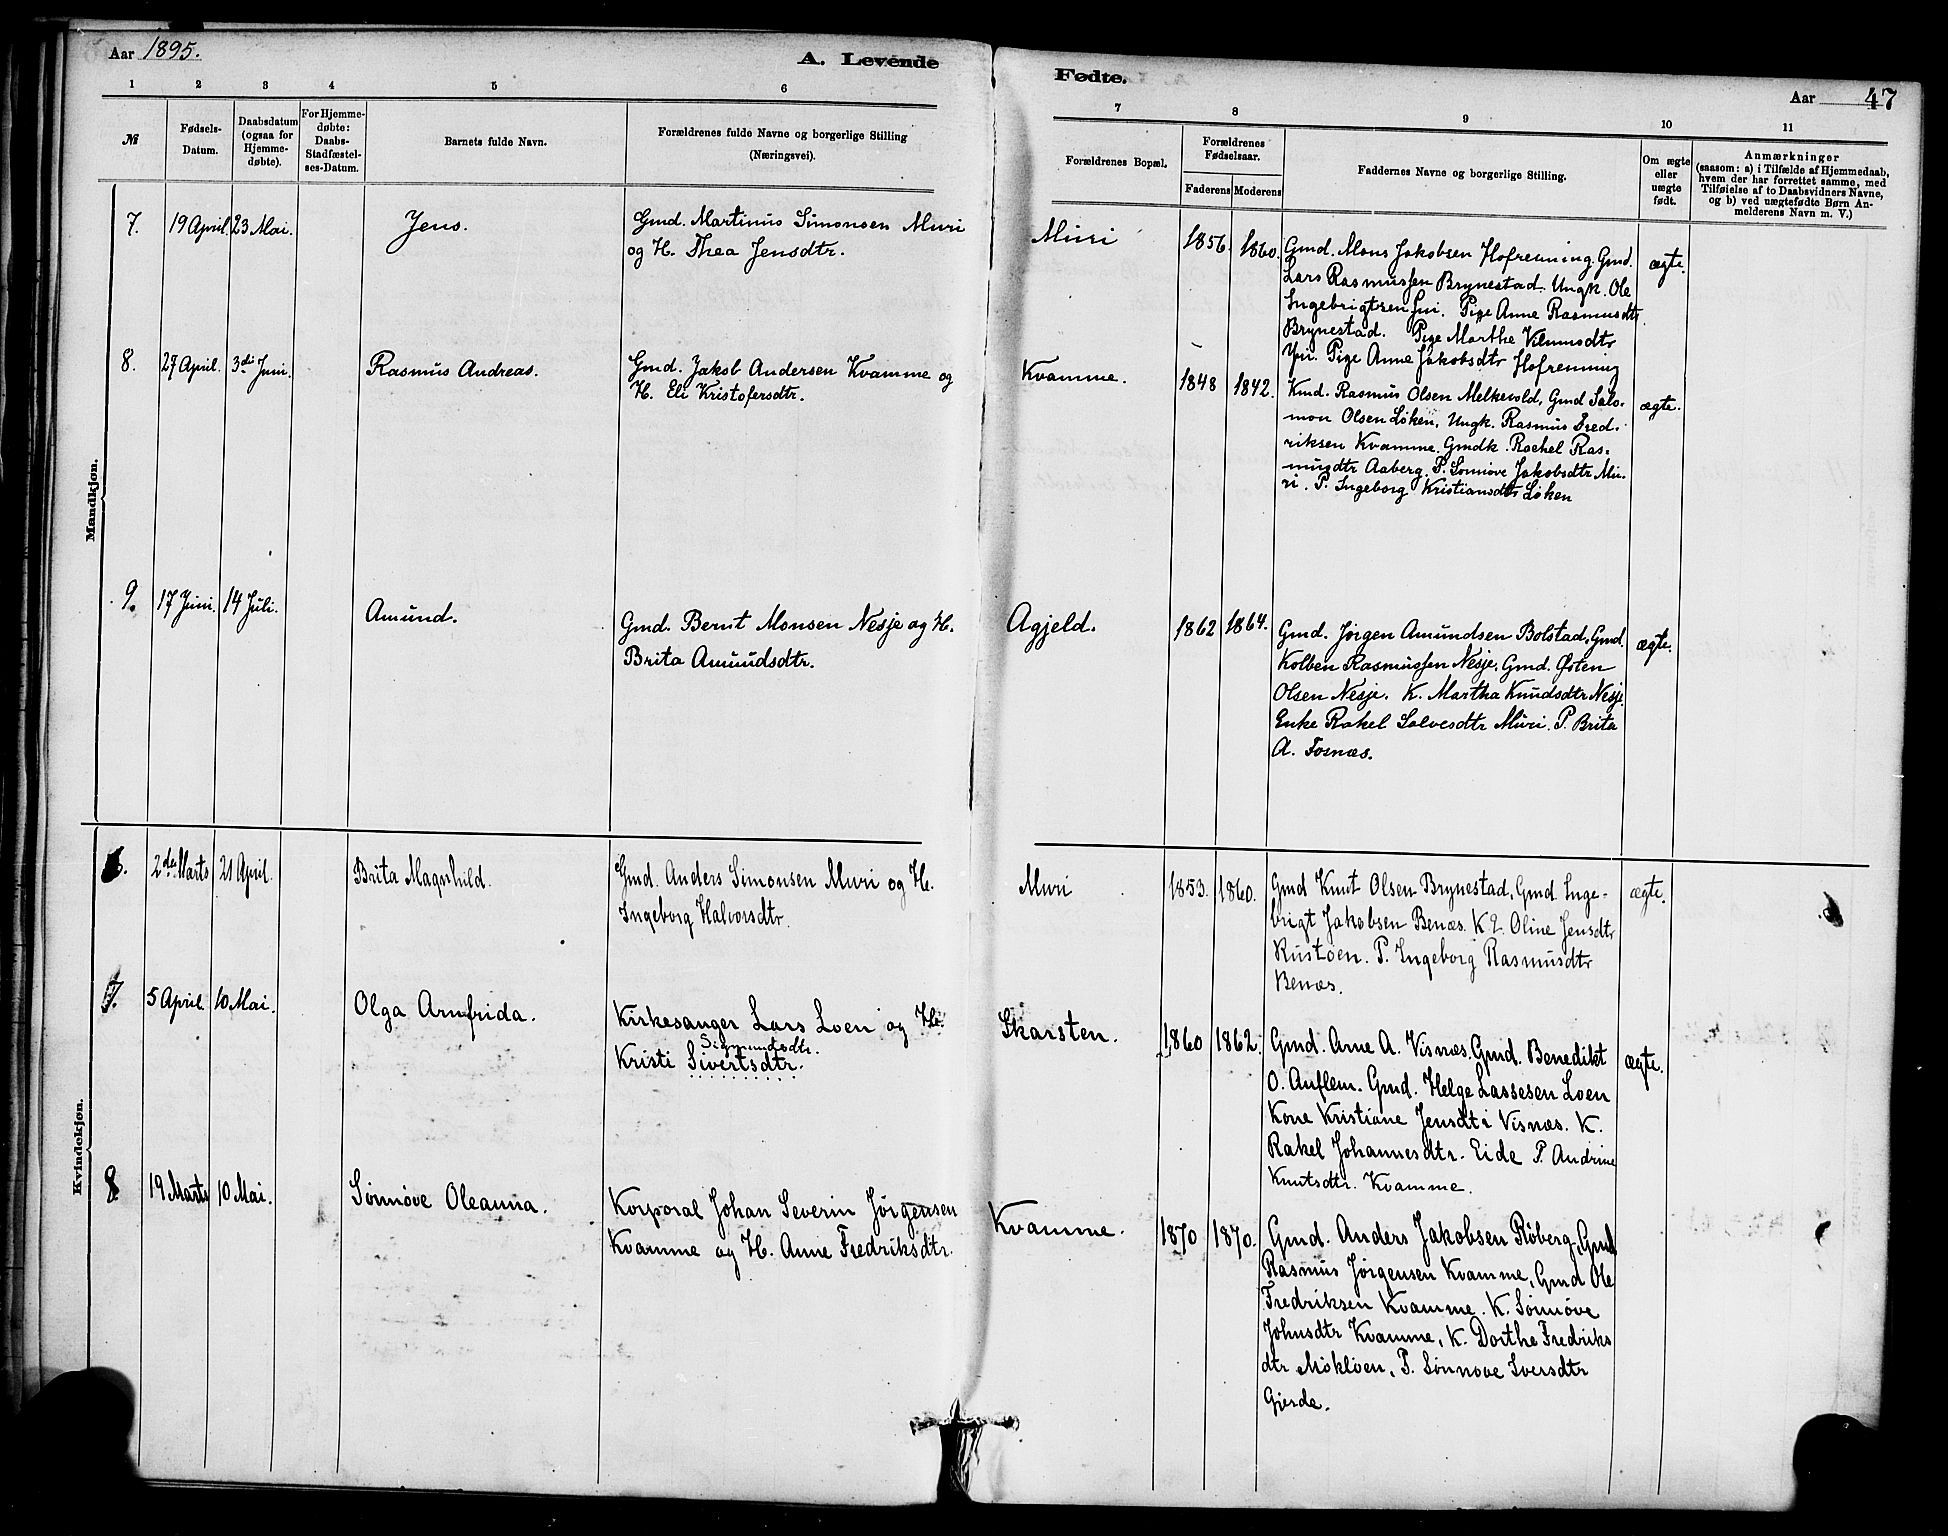 Aar 1895.
A. Levende
Fødte.
Aar 47
1 2 3 4 5 6
7 8 9 10 11
№
Fødsels-
Datum.
Daabsdatum
(ogsaa for
Hjemme-
døbte).
For Hjemme-
døbte:
Daabs-
Stadfæstel-
ses-Datum.
Barnets fulde Navn.
Forældrenes fulde Navne og borgerlige Stilling
(Næringsvei).
Forældrenes Bopæl.
Forældrenes
Fødselsaar.
Faderens Moderens
Faddernes Navne og borgerlige Stilling.
Om ægte
eller
uægte
født.
Anmærkninger
(saasom: a) i Tilfælde af Hjemmedaab,
hvem der har forrettet samme, med
Tilføielse af to Daabsvidners Navne,
og b) ved uægtefødte Børn An-
melderens Navn m. V.)
Mandkjøn.
7. 19 April. 23 Mai. Jens.
Gmd. Martinus Simonsen Muri
og H. Thea Jensdtr.
Muri 1856. 1860.
Gmd. Mons Jakobsen Hofrenning. Gmd.
Lars Rasmussen Brynestad. Ungk. Ole
Ingebrigtsen . Pige Anne Rasmusdtr
Brynestad. Pige Marthe
Pige Anne Jakobsdtr Hofrenning
ægte.
8. 27 April. 3die Juni. Rasmus Andreas.
Gmd. Jakob Andersen Kvamme og
H. Eli Kristofersdtr.
Kvamme. 1848 1842.
Kmd. Rasmus Olsen Melkevold, Gmd Salo-
mon Olsen Løken, Ungk. Rasmus Fred-
riksen Kvamme. Gmdk. Rachel Ras-
musdtr Aaberg. P. Sønnøve Jakobsdtr Mu-
ri. P. Ingeborg Kristiansdtr Løken
ægte.
9. 17 Juni. 14 Juli. Amund.
Gmd. Bernt Monsen Nesje og H.
Brita Amundsdtr.
Agjeld. 1862 1864.
Gmd. Jørgen Amundsen Bolstad, Gmd.
Kolben Rasmussen Nesje, Gmd. Østen
Olsen Nesje. K. Martha Knudsdtr Nesje
Enke Rakel Salvesdtr Muri. P. Brita
A. Fosnæs.
ægte.
Kvindekjøn.
6. 2den Marts 21 April. Brita Magnhild.
Gmd. Anders Simonsen Muri og H.
Ingeborg Halvorsdtr.
Muri 1853. 1860.
Gmd Knut Olsen Brynestad, Gmd. Inge-
brigt Jakobsen Benæs. K Oline Jensdtr
Rustøen. P. Ingeborg Rasmusdtr
Benæs.
ægte.
7. 5 April. 10 Mai. Olga Arnfrida.
Kirkesanger Lars Loen og H.
Sigmundsdtr.
Kristi Sivertsdtr.
Skarsten. 1860 1862.
Gmd. Arne A. Visnæs. Gmd. Benedikt
O. Auflem. Gmd. Helge Lassesen Loen
Kone Kristiane Jensdtr Visnæs. K.
Rakel Johannesdtr. Eide P. Andrine
Knutsdtr. Kvamme.
ægte.
8 19 Marts 10 Mai. Sønnøve Oleanna.
Korporal Johan Severin Jørgensen
Kvamme og H. Anne Fredriksdtr.
Kvamme. 1870 1870.
Gmd. Anders Jakobsen Røberg, Gmd
Rasmus Jørgensen Kvamme, Gmd Ole
Fredriksen Kvamme. K. Sønnøve
Johnsdtr Kvamme, K. Dorthe Fredriks
dtr Mokløen, P. Sønnøve Iversdtr
Gjerde.